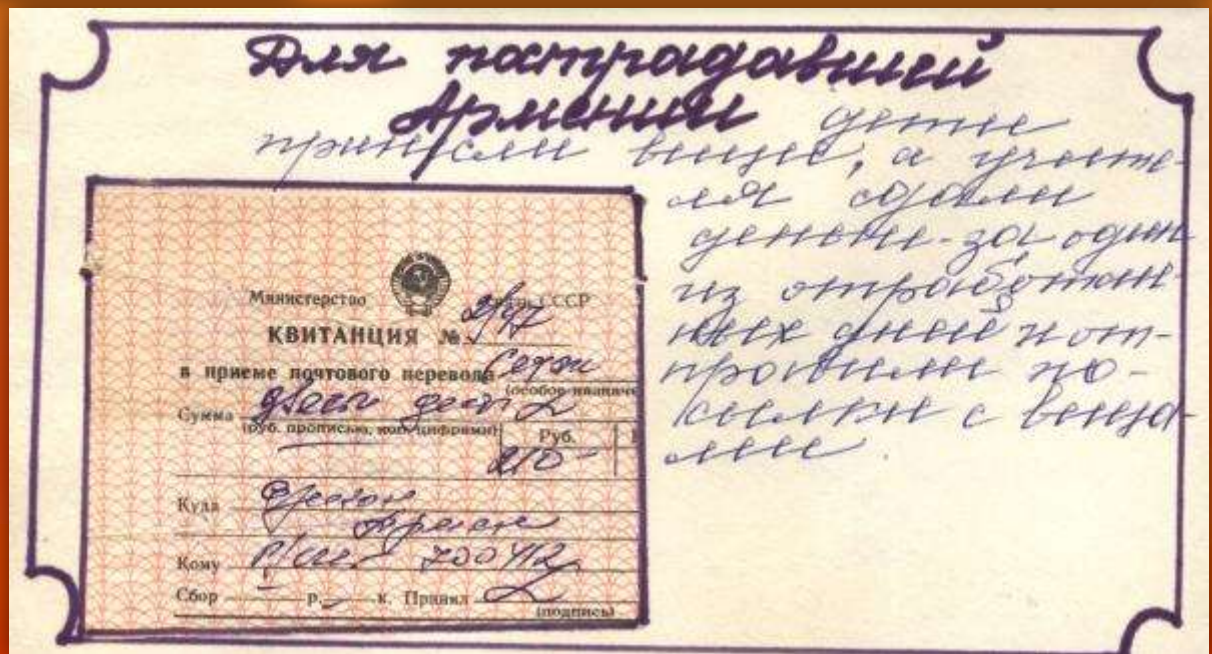 Для пострадавшей
Армении дети
принесли вещи, а учите-
ля сдали
деньги - за один
из отработан-
ных дней и от-
правили по-
сылки с веща-
ми.
Министерство связи СССР
КВИТАНЦИЯ №
в приеме почтового перевода
(особое
Сумма двести десять
(руб. прописью, коп. цифрами) Руб.
210-
Куда Ереван
Кому Р/счет 700412
Сбор р. к. Принял
(подпись)